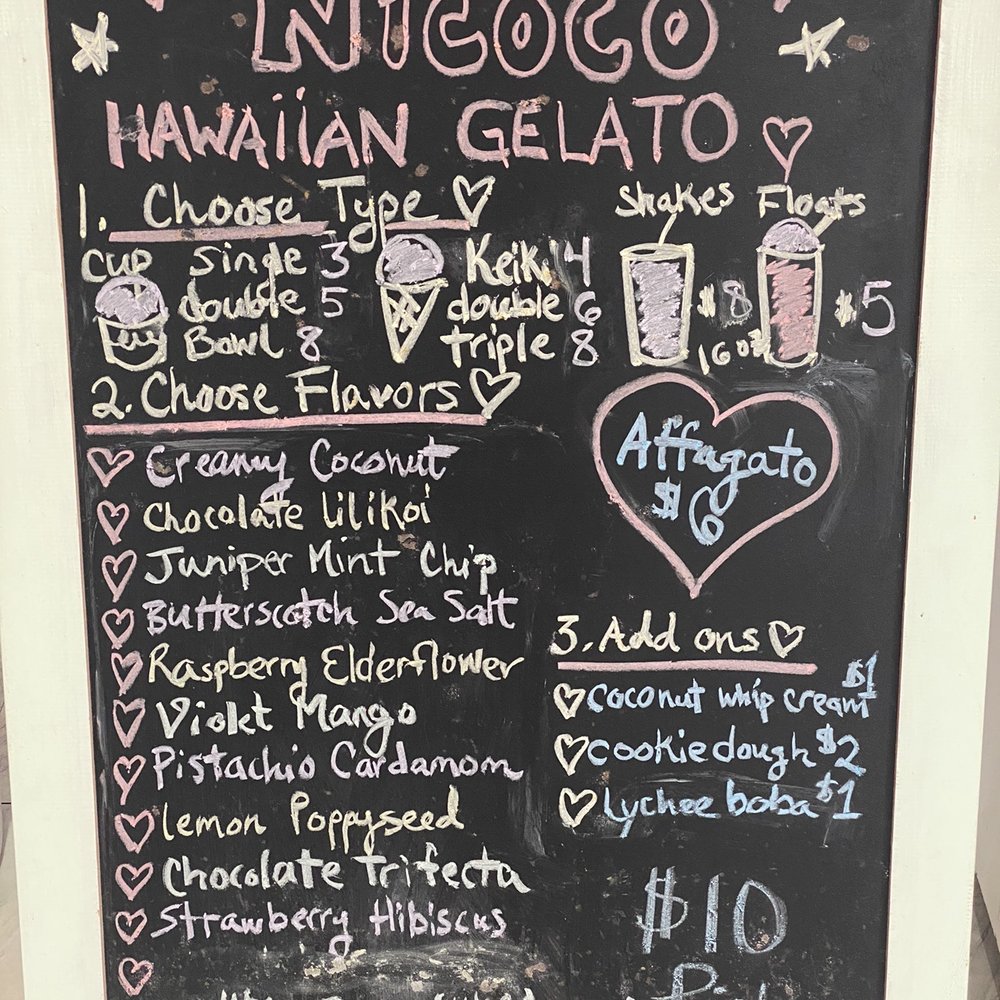 NICOCO
HAWAIIAN GELATO
1. Choose Type
cup single 3
double 5
Bowl 8
Keiki 4
double 6
triple 8
Shakes
$8
16oz
Floats
$5
2. Choose Flavors
Creamy Coconut
Chocolate Lilikoi
Juniper Mint Chip
Butterscotch Sea Salt
Raspberry Elderflower
Violet Mango
Pistachio Cardamom
lemon Poppyseed
Chocolate trifecta
Strawberry Hibiscus
Affagato
$6
3. Add ons
coconut whip cream $1
cookie dough $2
lychee boba $1
$10